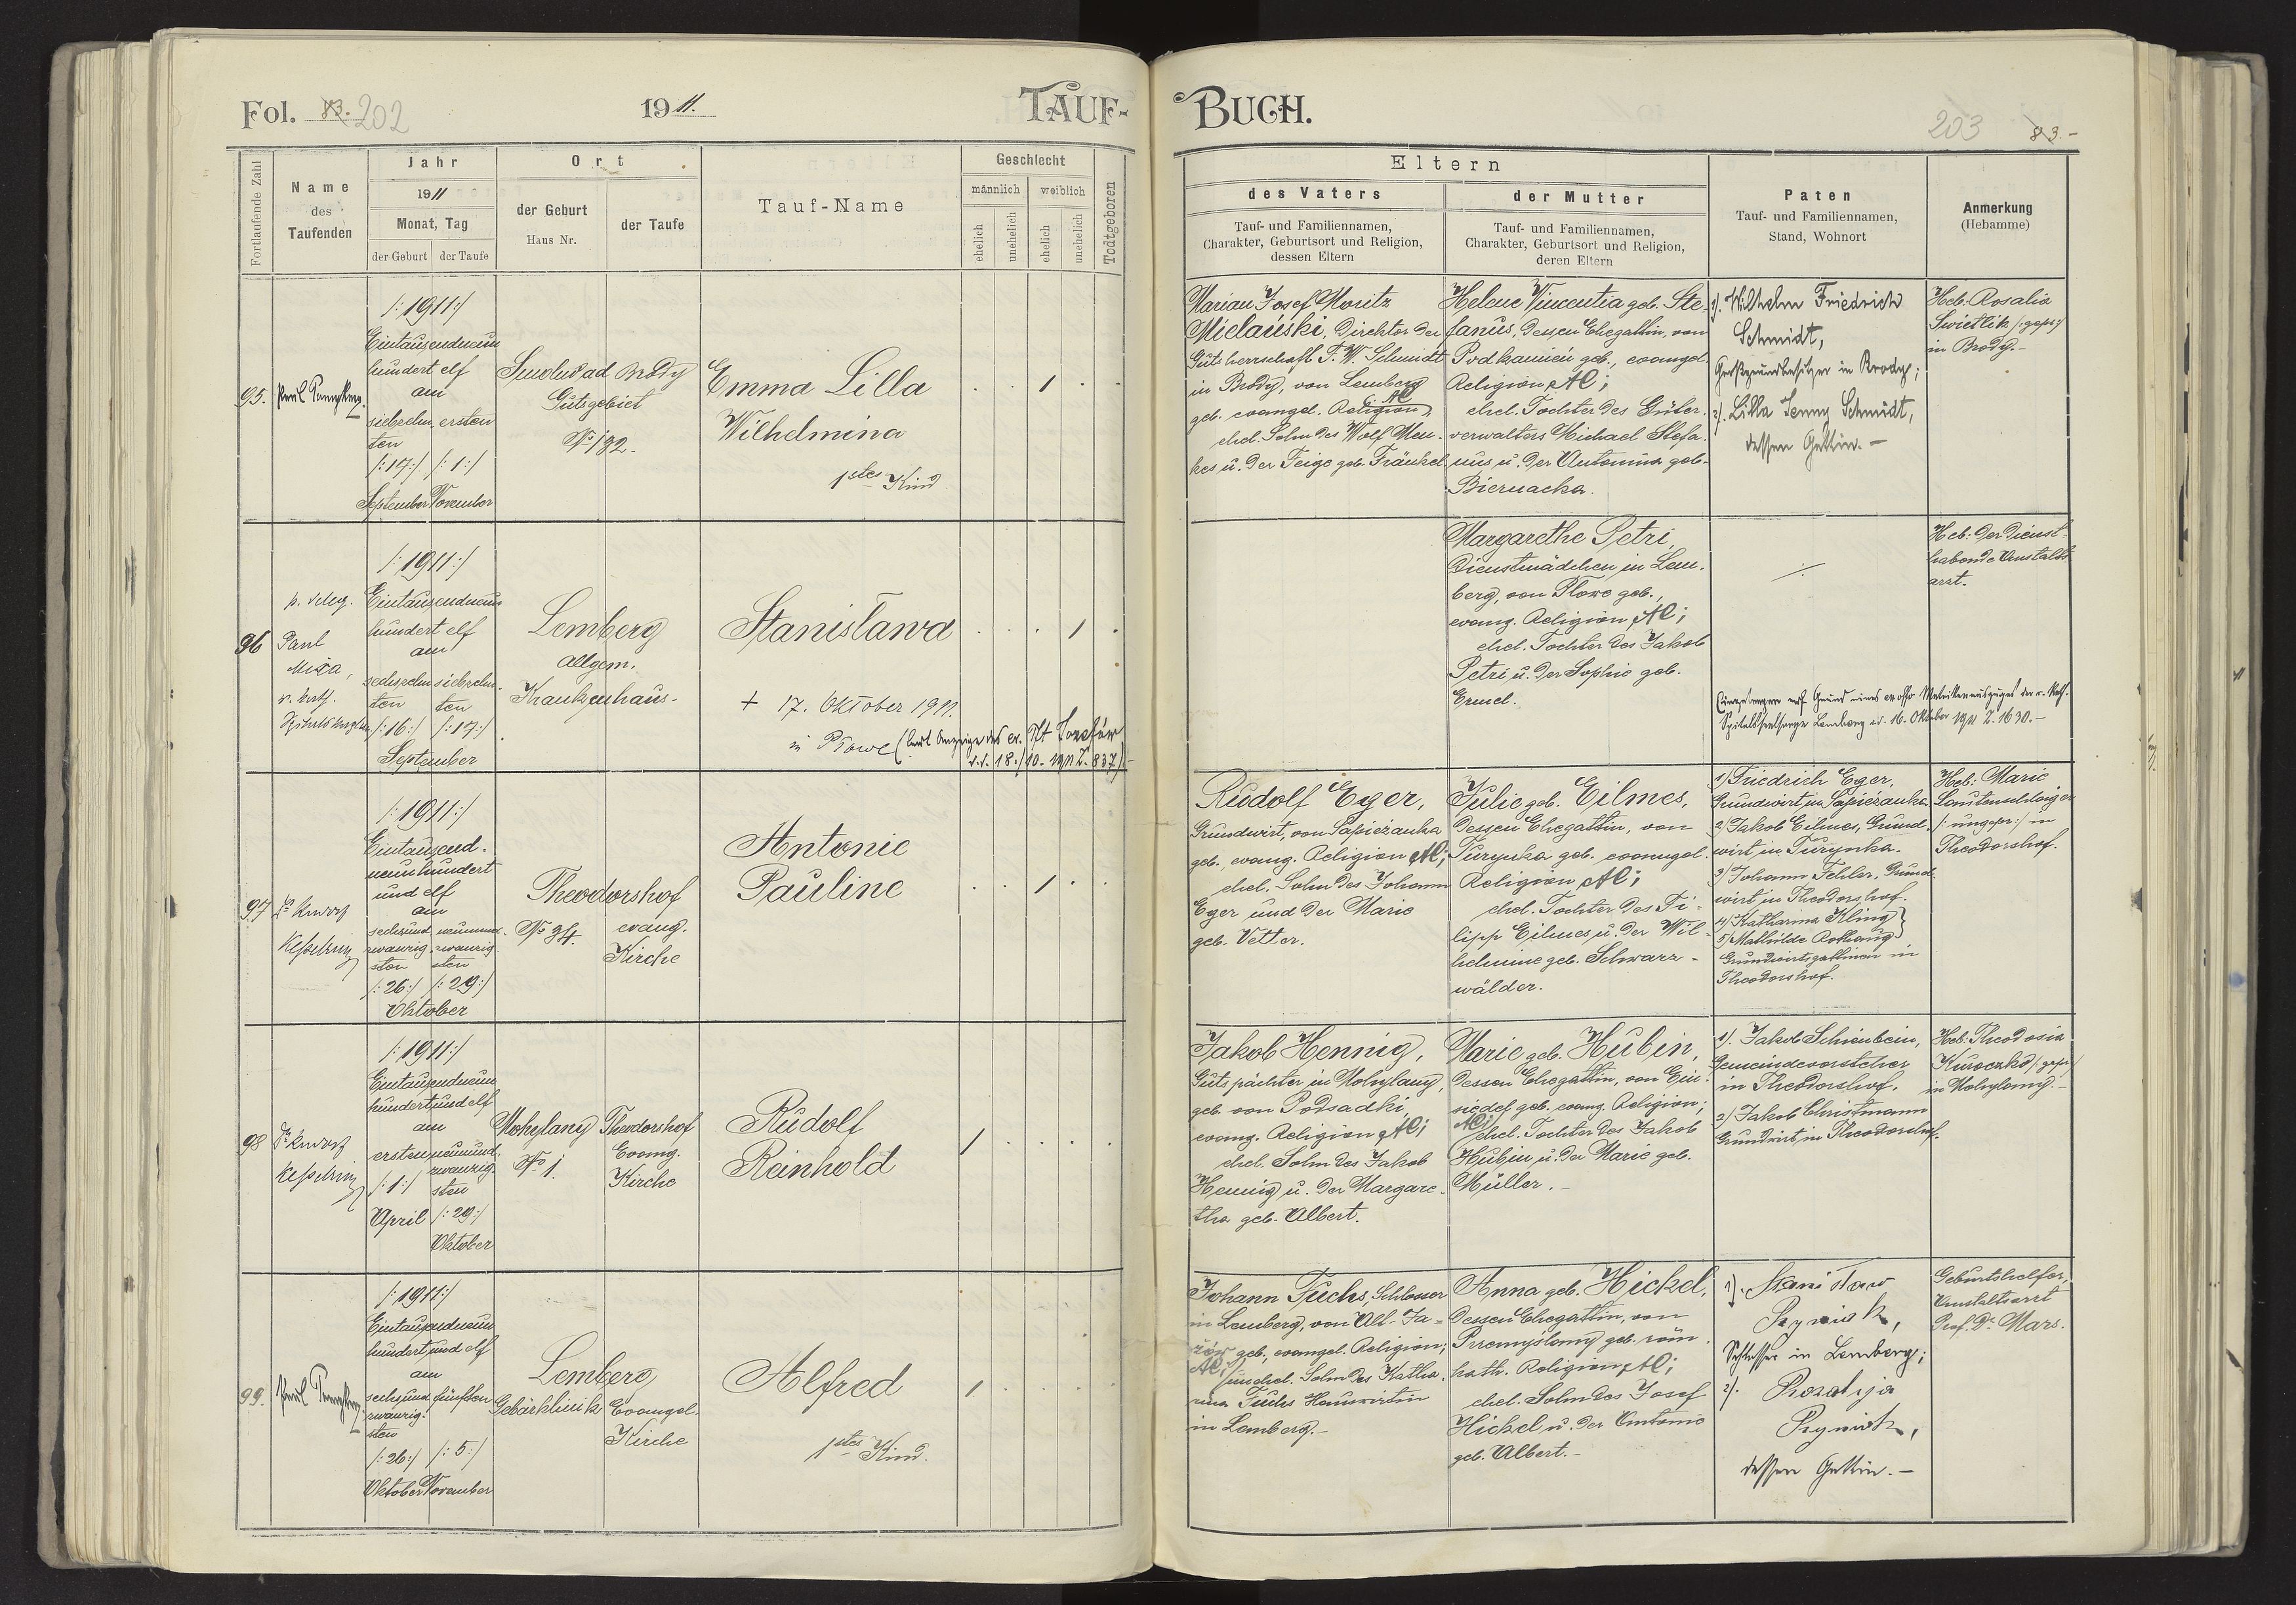 Fol. 83. 202
1911.
TAUF-
BUCH.
203
83.-
Fortlaufende Zahl
Name
des
Taufenden
Jahr
1911
Monat, Tag
der Geburt
der Taufe
Ort
der Geburt
Haus Nr.
der Taufe
Tauf-Name
Geschlecht
männlich
weiblich
ehelich
unehelich
ehelich
unehelich
Todtgeboren
Eltern
des Vaters
Tauf- und Familiennamen,
Charakter, Geburtsort und Religion,
dessen Eltern
der Mutter
Tauf- und Familiennamen,
Charakter, Geburtsort und Religion,
deren Eltern
Paten
Tauf- und Familiennamen,
Stand, Wohnort
Anmerkung
(Hebamme)
95.
Paul
/:1911:/
Eintausendneun
hundert elf
am
siebzehn ersten
ten
/:17:/ /:1:/
September November
ad Brody
Gutsgebiet
No 192.
Emma Lilla
Wilhelmina
1stes Kind
Marian Josef Moritz
Mielański, Direktor der
Gutsherrschaft J. W. Schmidt
in Brody, von Lemberg
geb. evangel. Religion AC,
ehel. Sohn des Wolf Men-
kes u. der Feige geb. Fränkel
Helene Vincentia geb. Ste-
fanus, dessen Ehegattin, von
Podkamień geb., evangel.
Religion AC;
ehel. Tochter des Güter-
verwalters Michael Stefa-
nus u. der Antonina geb.
Biernacka.
1). Wilhelm Friedrich
Schmidt,
Großgrundbesitzer in Brody;
2). Lilla Jenny Schmidt,
dessen Gattin.-
Heb. Rosalia
Swietlik /:gepr:/
in Brody.-
96
p. deleg.
Paul
Mixa,
r. kath.
/:1911:/
Eintausendneun
hundert elf
am
sechzehn siebzehn-
ten ten
/:16:/ /:17:/
September
Lemberg
allgem.
Krankenhaus-
Stanisława
+ 17. Oktober 1911.
in Płowe (laut Anzeige des ev. Józefów
d.d. 18./10. 1911 Z. 837)-
Margarethe Petri,
Dienstmädchen in Lem-
berg, von Płowe geb.,
evang. Religion AC;
ehel. Tochter des Jakob
Petri u. der Sophie geb.
./.
Eingetragen auf Grund eines ex offo Matrikenauszuges der r. kath.
Spitalsseelsorge Lemberg d. 16. Oktober 1911 Z. 1630.-
Heb: der dienst-
habende Anstalts-
arzt.
97
Dr
Kesselring
/:1911:/
Eintausend-
neunhundert
und elf
am
sechsund neunund-
zwanzig- zwanzig-
sten sten
/:26:/ /:29:/
Oktober
Theodorshof
No 34. evang.
Kirche
Antonie
Pauline
Rudolf Eger,
Grundwirt, von Sapieżanka
geb., evang. Religion AC;
ehel. Sohn des Johann
Eger und der Marie
geb. Vetter.
Julie geb. Eilmes,
dessen Ehegattin, von
Turynka geb. evangel.
Religion AC;
ehel. Tochter des Fi-
lipp Eilmes u. der Wil-
helmine geb. Schwarz-
wälder.
1) Friedrich Eger,
Grundwirt in Sapieżanka.
2) Jakob Eilmes, Grund-
wirt in Turynka.
3) Johann Fehler, Grund-
wirt in Theodorshof.
4) Katharina Kling
5) Mathilde Rothaug
Grundwirtsgattinen in
Theodorshof.
Heb: Marie
Lautenschlaiger
/:ungepr:/ in
Theodorshof.
98
Dr
Kesselring
/:1911:/
Eintausendneun
hundert und elf
am
ersten neunund-
zwanzig-
/:1:/ sten
April /:29:/
Oktober
Mohylany Theodorshof
No 1. Evang.
Kirche
Rudolf
Reinhold
Jakob Hennig,
Gutspächter in Mohylany,
geb. von Podsadki,
evang. Religion AC;
ehel. Sohn des Jakob
Hennig u. der Margare-
tha geb. Albert.
Marie geb. Hubin,
dessen Ehegattin, von Ein-
siedel geb. evang. Religion;
AC; ehel. Tochter des Jakob
Hubin u. der Marie geb.
Müller.-
1). Jakob Schienbein,
Gemeindevorsteher
in Theodorshof.
2) Jakob Christmann
Grundwirt in Theodorshof.
Heb: Theodosia
Kuroczko /:gepr:/
in Mohylany.-
99.
Paul
/:1911:/
Eintausendneun
hundert und elf
am
sechsund fünften
zwanzig-
sten
/:26:/ /:5:/
Oktober November
Lemberg
Gebärklinik Evangel.
Kirche
Alfred
1stes Kind.
Johann Fuchs, Schlosser
in Lemberg, von Alt-Ja-
żów geb., evangel. Religion;
AC; unehel. Sohn der Katha-
rina Fuchs Hauswirtin
in Lemberg.-
Anna geb. Hickel,
dessen Ehegattin, von
Przemyślany geb. röm.
kath. Religion AC;
ehel. Sohn des Josef
Hickel u. der Antonie
geb. Albert.-
1). Stanisław
Schlosser in Lemberg;
2). Rozalja
dessen Gattin.-
Geburtshelfer,
Anstaltsarzt
Prof. Dr Mars.